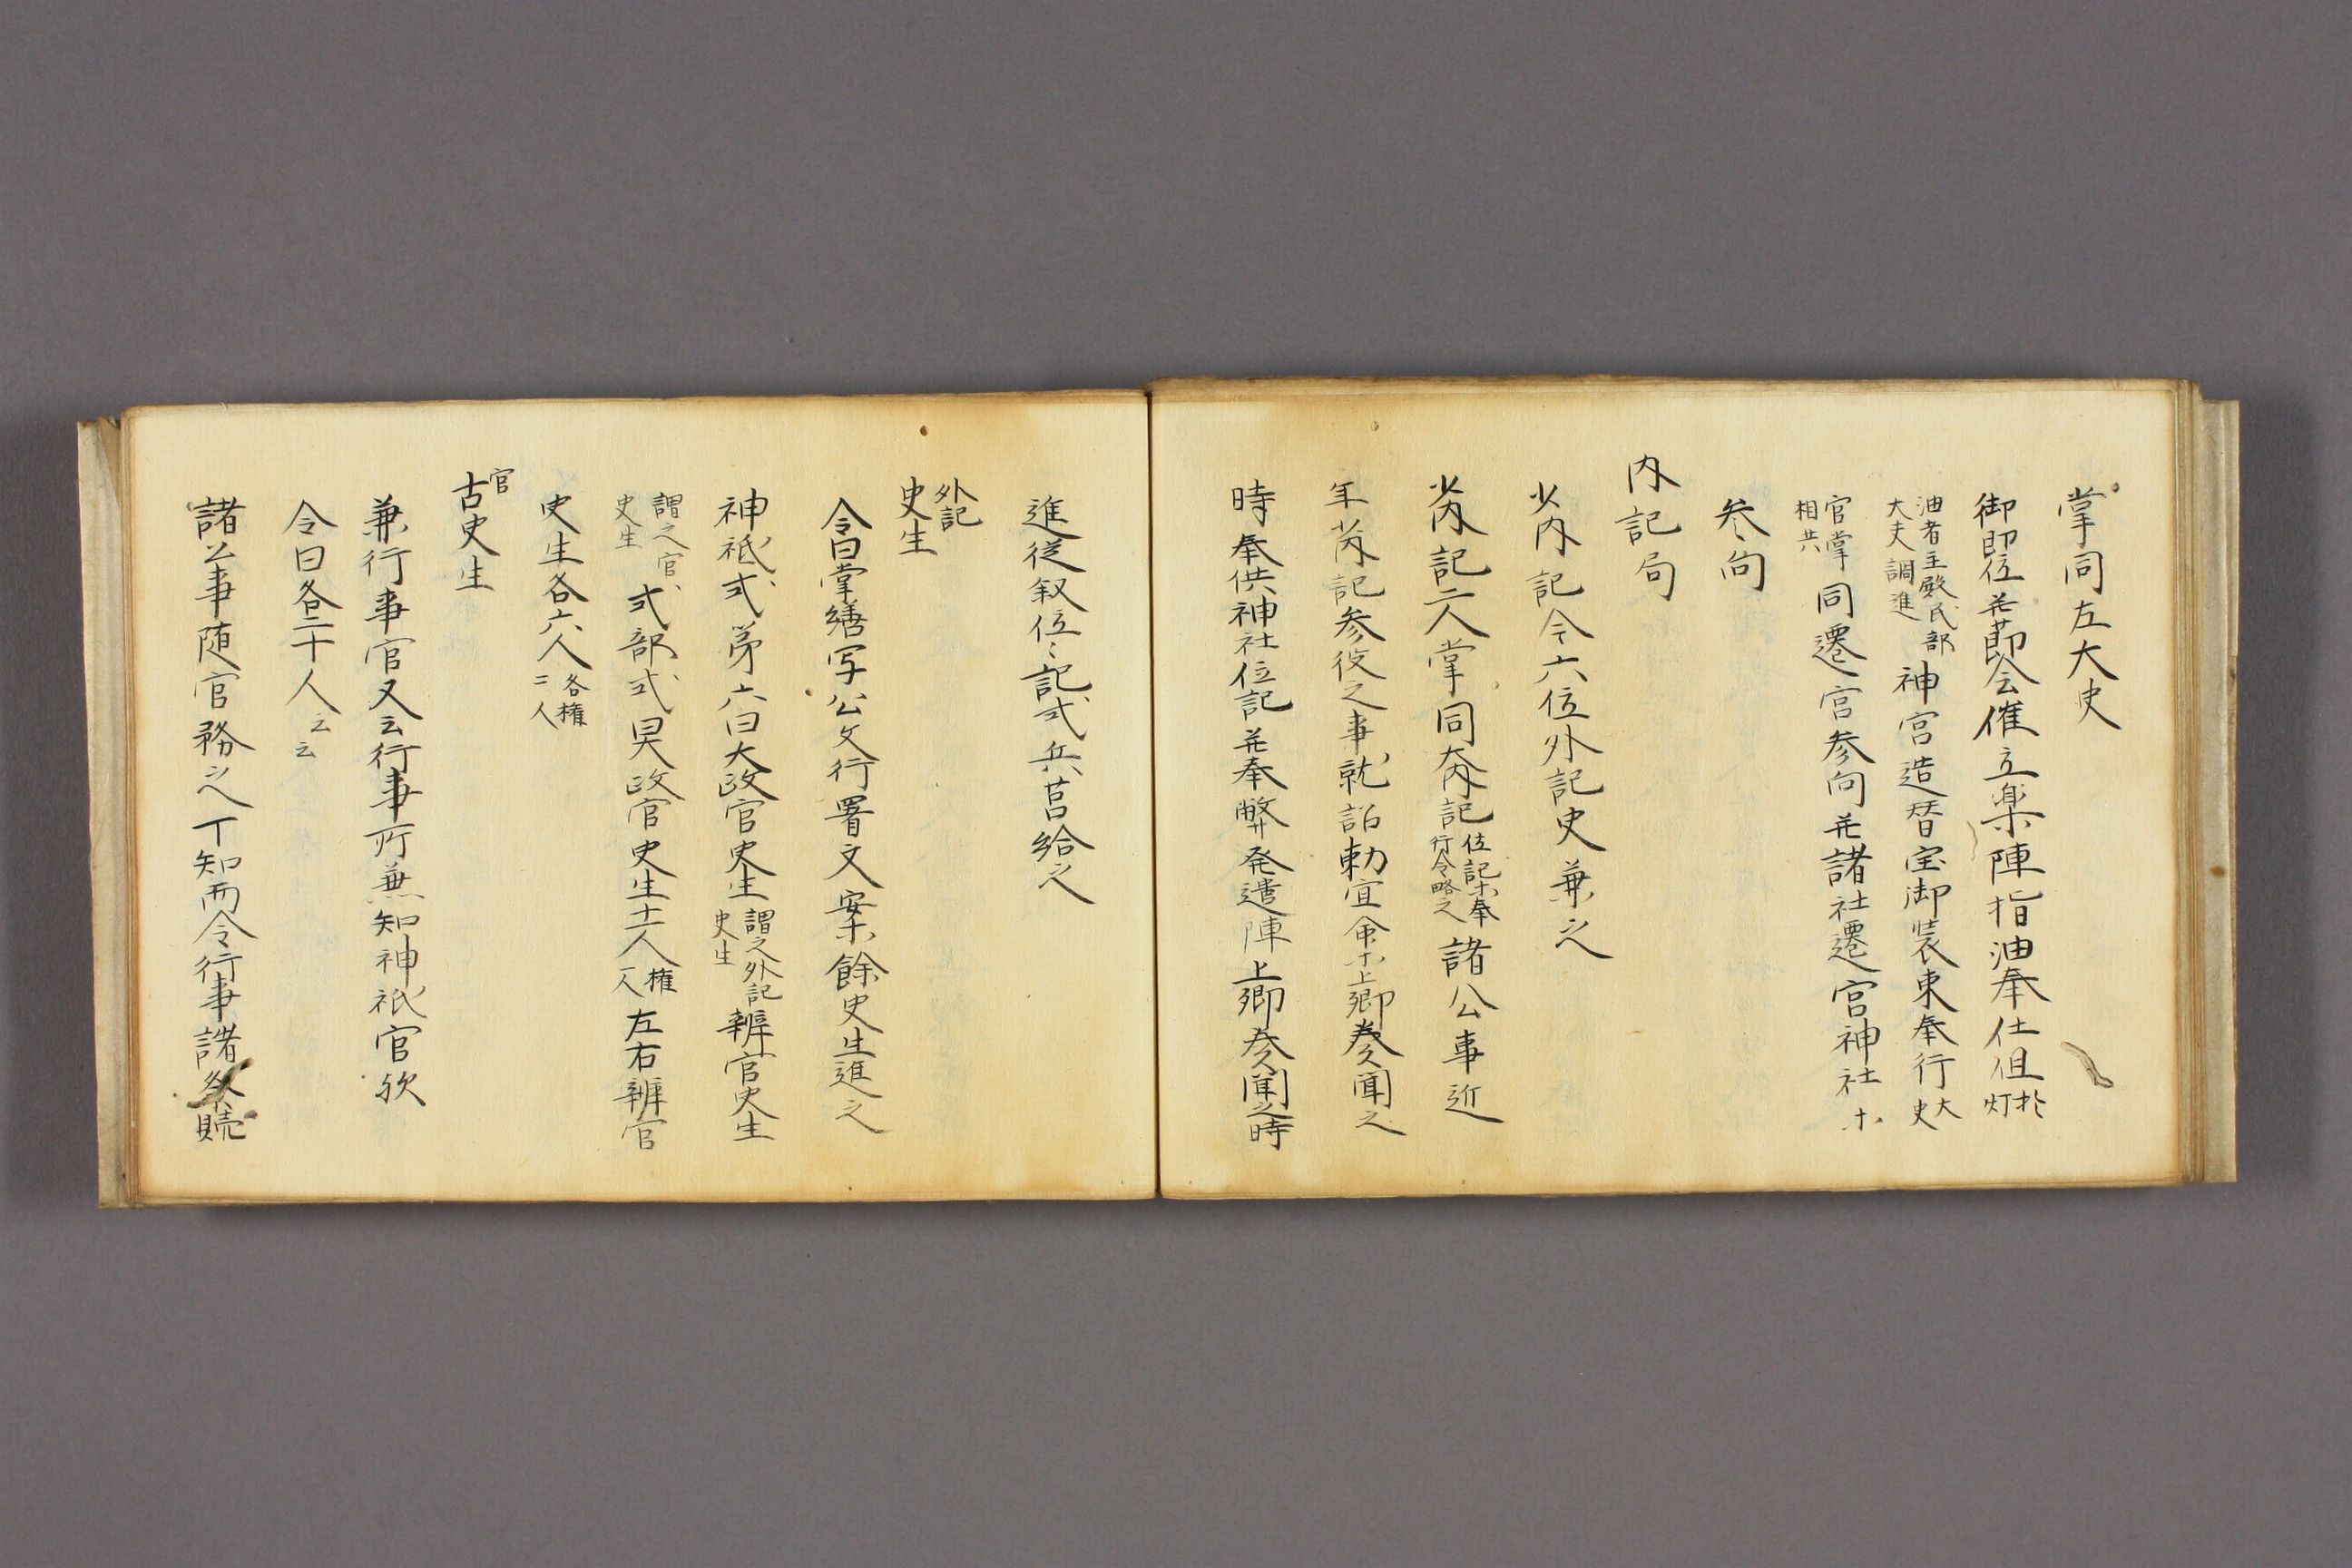 掌同左大史
御即位并節会催立楽陣指油奉仕但於灯
油者主殿民部大夫調進神宮造替宝御装束奉行大史
官掌相共同遷宮参向并諸社遷宮神社ホ
参向
内記局
少内記令六位外記史兼之
少内記二人掌同大内記位記ホ奉行令略之諸公事近
年少内記参役之事就詔勅宣命ホ上卿奏聞之
時奉供神社位記并奉幣発遣陣上卿奏聞之時
進従叙位々記式兵莒給之
外記史生
令曰掌繕写公文行署文案餘史生進之
神祇式第六曰大政官史生謂之外記史生辨官史生
謂之官史生式部式曰大政官史生十一人権一人左右辨官
史生各六人各権二人
官古史生
兼行事官又云行事所兼知神祇官欤
令曰各二十人云云
諸公事随官務之下知而令行事諸祭賎